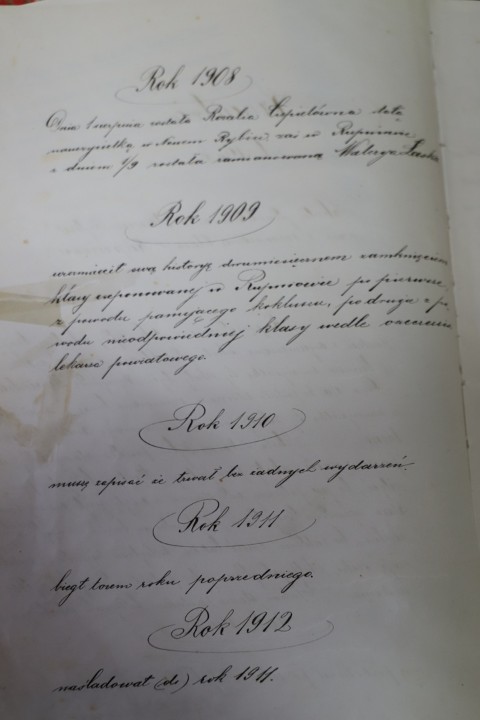 Rok 1908
Dnia 1 sierpnia została Rozalia Cepielówna stałą
nauczycielką w Nowem Rybiu, zaś w Rupniowie
z dniem 1/9 została zamianowaną Walerya
Rok 1909
urozmaicił swą historyę dwumiesięcznem zamknięciem
klasy eksponowanej w Rupniowie po pierwsze
z powodu panującego kokluszu, po drugie z po
wodu nieodpowiedniej klasy wedle orzeczenia
lekarza powiatowego.
Rok 1910
muszę zapisać iż trwał bez żadnych wydarzeń.
Rok 1911
biegł torem roku poprzedniego.
Rok 1912
naśladował rok 1911.